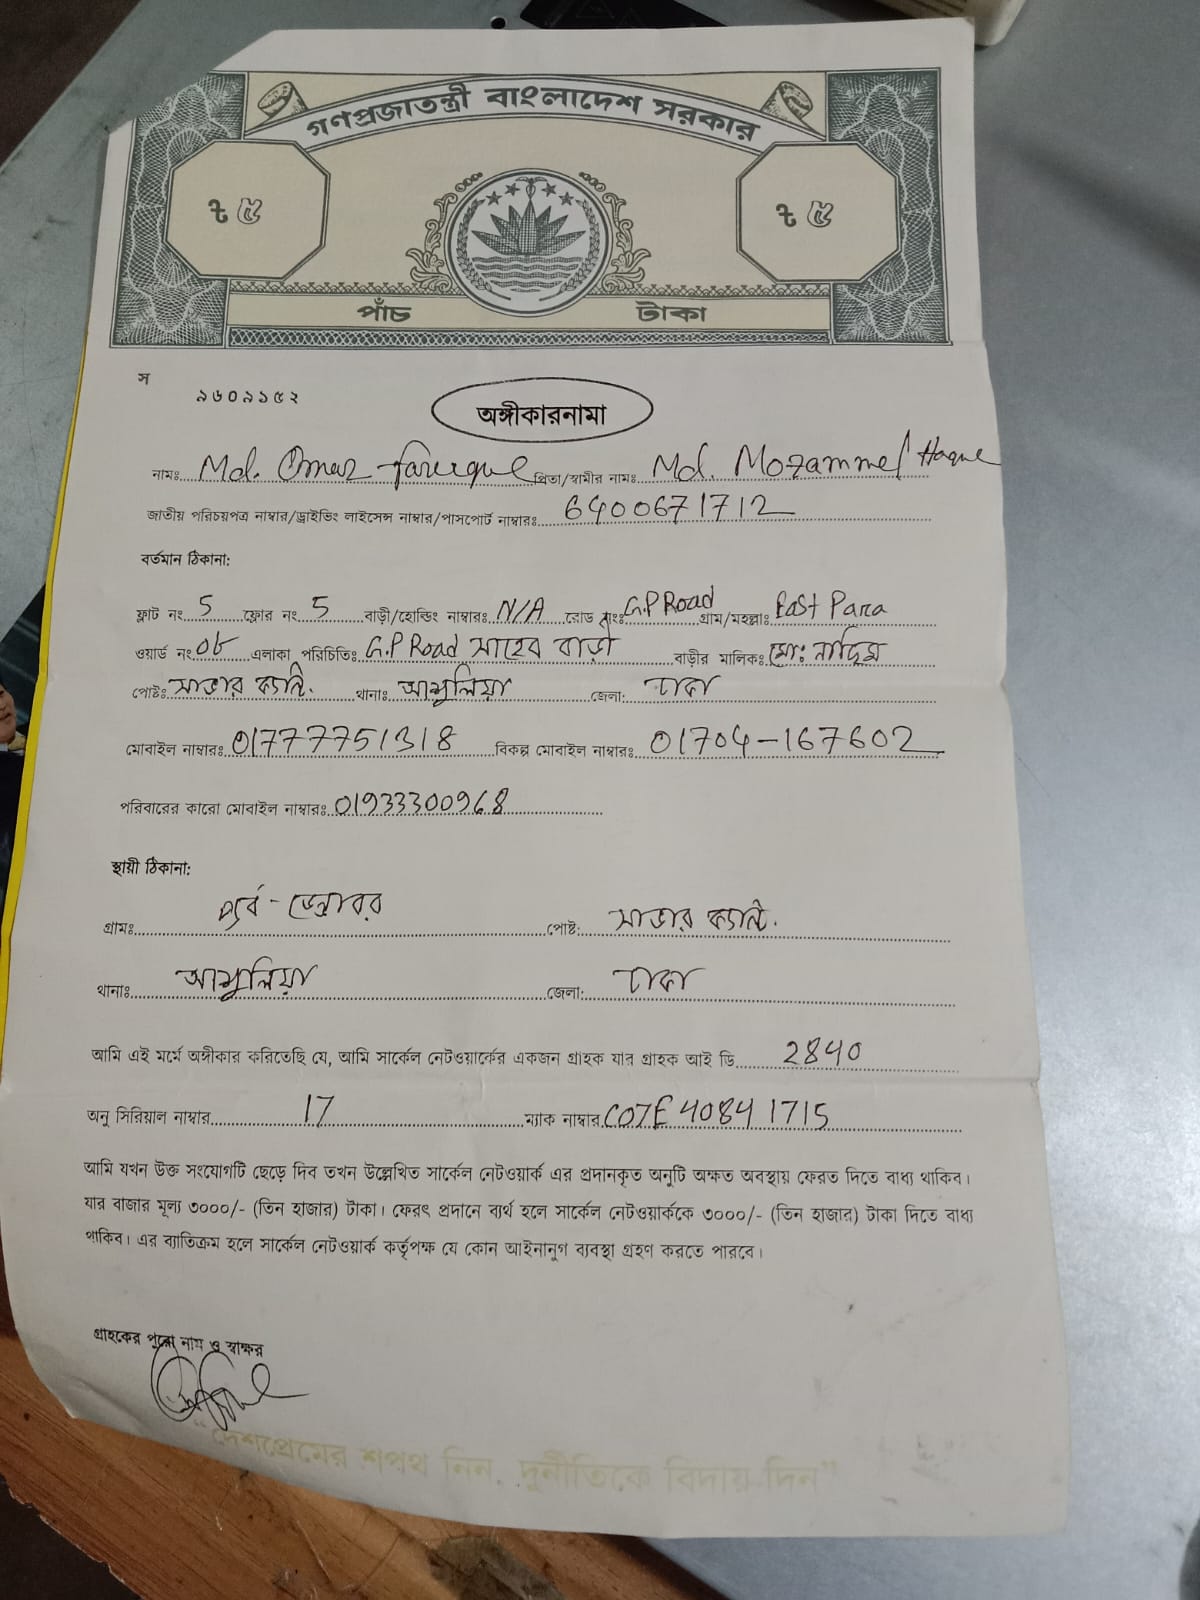 গণপ্রজাতন্ত্রী বাংলাদেশ সরকার
৳ ৫ ৳ ৫
পাঁচ টাকা
স
৯৬০৯১৫২
অঙ্গীকারনামা
নামঃ Md. Omar Faruque পিতা/স্বামীর নামঃ Md. Mozammel Haque
জাতীয় পরিচয়পত্র নাম্বার/ড্রাইভিং লাইসেন্স নাম্বার/পাসপোর্ট নাম্বারঃ 6400671712
বর্তমান ঠিকানা:
ফ্লাট নং 5 ফ্লোর নং 5 বাড়ী/হোল্ডিং নাম্বারঃ N/A রোড নংঃ G.P Road গ্রাম/মহল্লাঃ East Para
ওয়ার্ড নং 08 এলাকা পরিচিতিঃ G.P Road সাহেব বাড়ী বাড়ীর মালিকঃ মোঃ নাদিম
পোষ্টঃ সাভার ক্যান্ট. থানাঃ আশুলিয়া জেলা: ঢাকা
মোবাইল নাম্বারঃ 01777751318 বিকল্প মোবাইল নাম্বারঃ 01704-167602
পরিবারের কারো মোবাইল নাম্বারঃ 01933300968
স্থায়ী ঠিকানা:
গ্রামঃ পূর্ব - ডেন্ডাবর পোষ্ট: সাভার ক্যান্ট.
থানাঃ আশুলিয়া জেলা: ঢাকা
আমি এই মর্মে অঙ্গীকার করিতেছি যে, আমি সার্কেল নেটওয়ার্কের একজন গ্রাহক যার গ্রাহক আই ডি 2840
অনু সিরিয়াল নাম্বার 17 ম্যাক নাম্বার C07E 4084 1715
আমি যখন উক্ত সংযোগটি ছেড়ে দিব তখন উল্লেখিত সার্কেল নেটওয়ার্ক এর প্রদানকৃত অনুটি অক্ষত অবস্থায় ফেরত দিতে বাধ্য থাকিব।
যার বাজার মূল্য ৩০০০/- (তিন হাজার) টাকা। ফেরৎ প্রদানে ব্যর্থ হলে সার্কেল নেটওয়ার্ককে ৩০০০/- (তিন হাজার) টাকা দিতে বাধ্য
থাকিব। এর ব্যতিক্রম হলে সার্কেল নেটওয়ার্ক কর্তৃপক্ষ যে কোন আইনানুগ ব্যবস্থা গ্রহণ করতে পারবে।
গ্রাহকের পুরো নাম ও স্বাক্ষর
"দেশপ্রেমের শপথ নিন, দুর্নীতিকে বিদায় দিন"